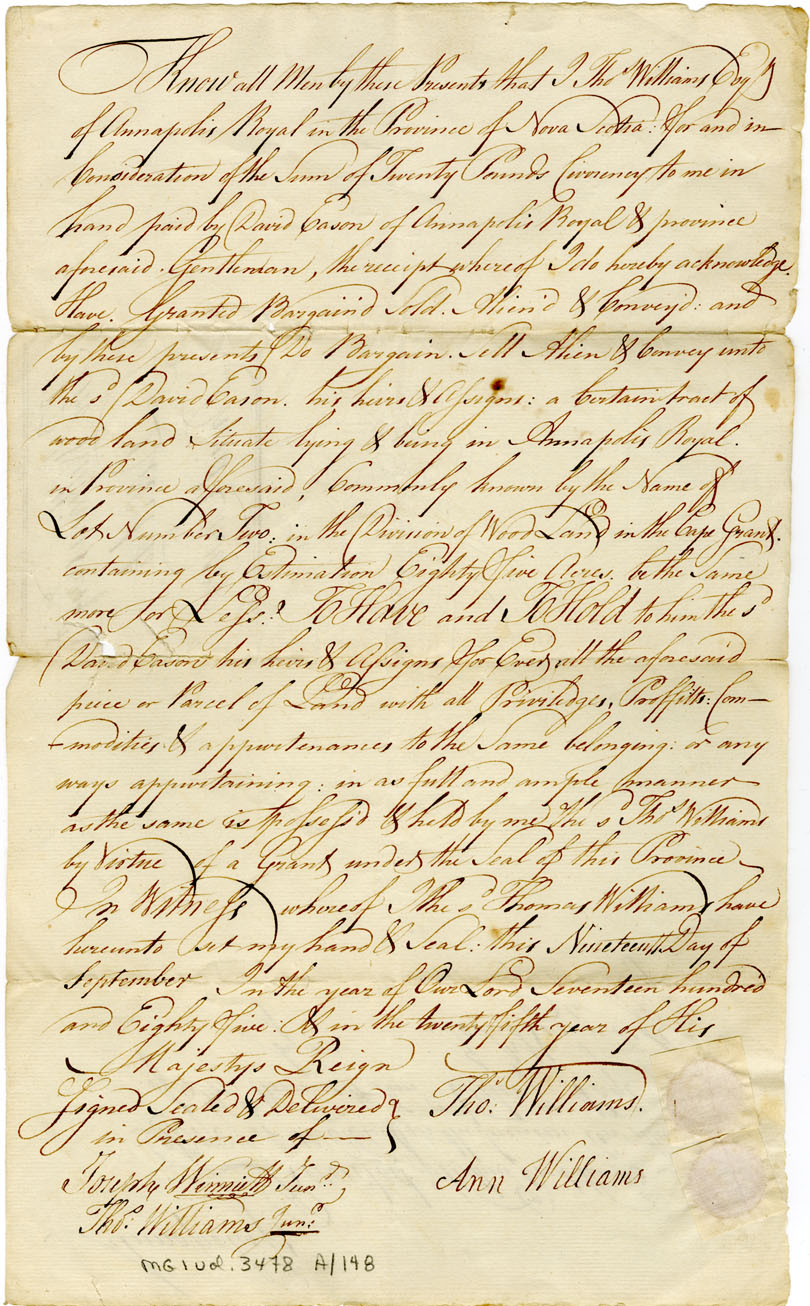 Know all Men by these Presents that I Thos Williams Esqr
of Annapolis Royal in the Province of Nova Scotia: for and in
Consideration of the Sum of Twenty Pounds Currency to me in
hand paid by David Eason of Annapolis Royal & province
aforesaid. Gentleman, the receipt whereof I do hereby acknowledge.
Have. Granted Bargain'd Sold. Alien'd & Convey'd: and
by these presents Do Bargain. Sell Alien & Convey unto
the sd David Eason. his heirs & Assigns: a Certain tract of
wood land Situate lying & being in Annapolis Royal.
in Province aforesaid, Commonly known by the Name of
Lot Number Two: in the Division of Wood Land in the Cape Grant.
containing by Estimation Eighty five Acres. be the Same
more or Less: To Have and To Hold to him the sd
David Eason his heirs & Assigns for Ever all the aforesaid
piece or Parcel of Land with all Priviledges, Proffitts: Com-
-modities & appurtenances to the Same belonging: or any
ways appurtaining: in as full and ample manner
as the same is Possess'd & held by me the sd Thos Williams
by Virtue of a Grant under the Seal of this Province
In Witness whereof I the sd Thomas Williams have
hereunto set my hand & Seal: this Nineteenth Day of
September In the year of Our Lord Seventeen hundred
and Eighty five: & in the twenty fifth year of His
Majestys Reign
Signed Sealed & Delivered
in Presence of
Thos: Williams.
Joseph Winniett Junr
Ann Williams
Thos. Williams Junr
MG1 Vol. 3478 A/148